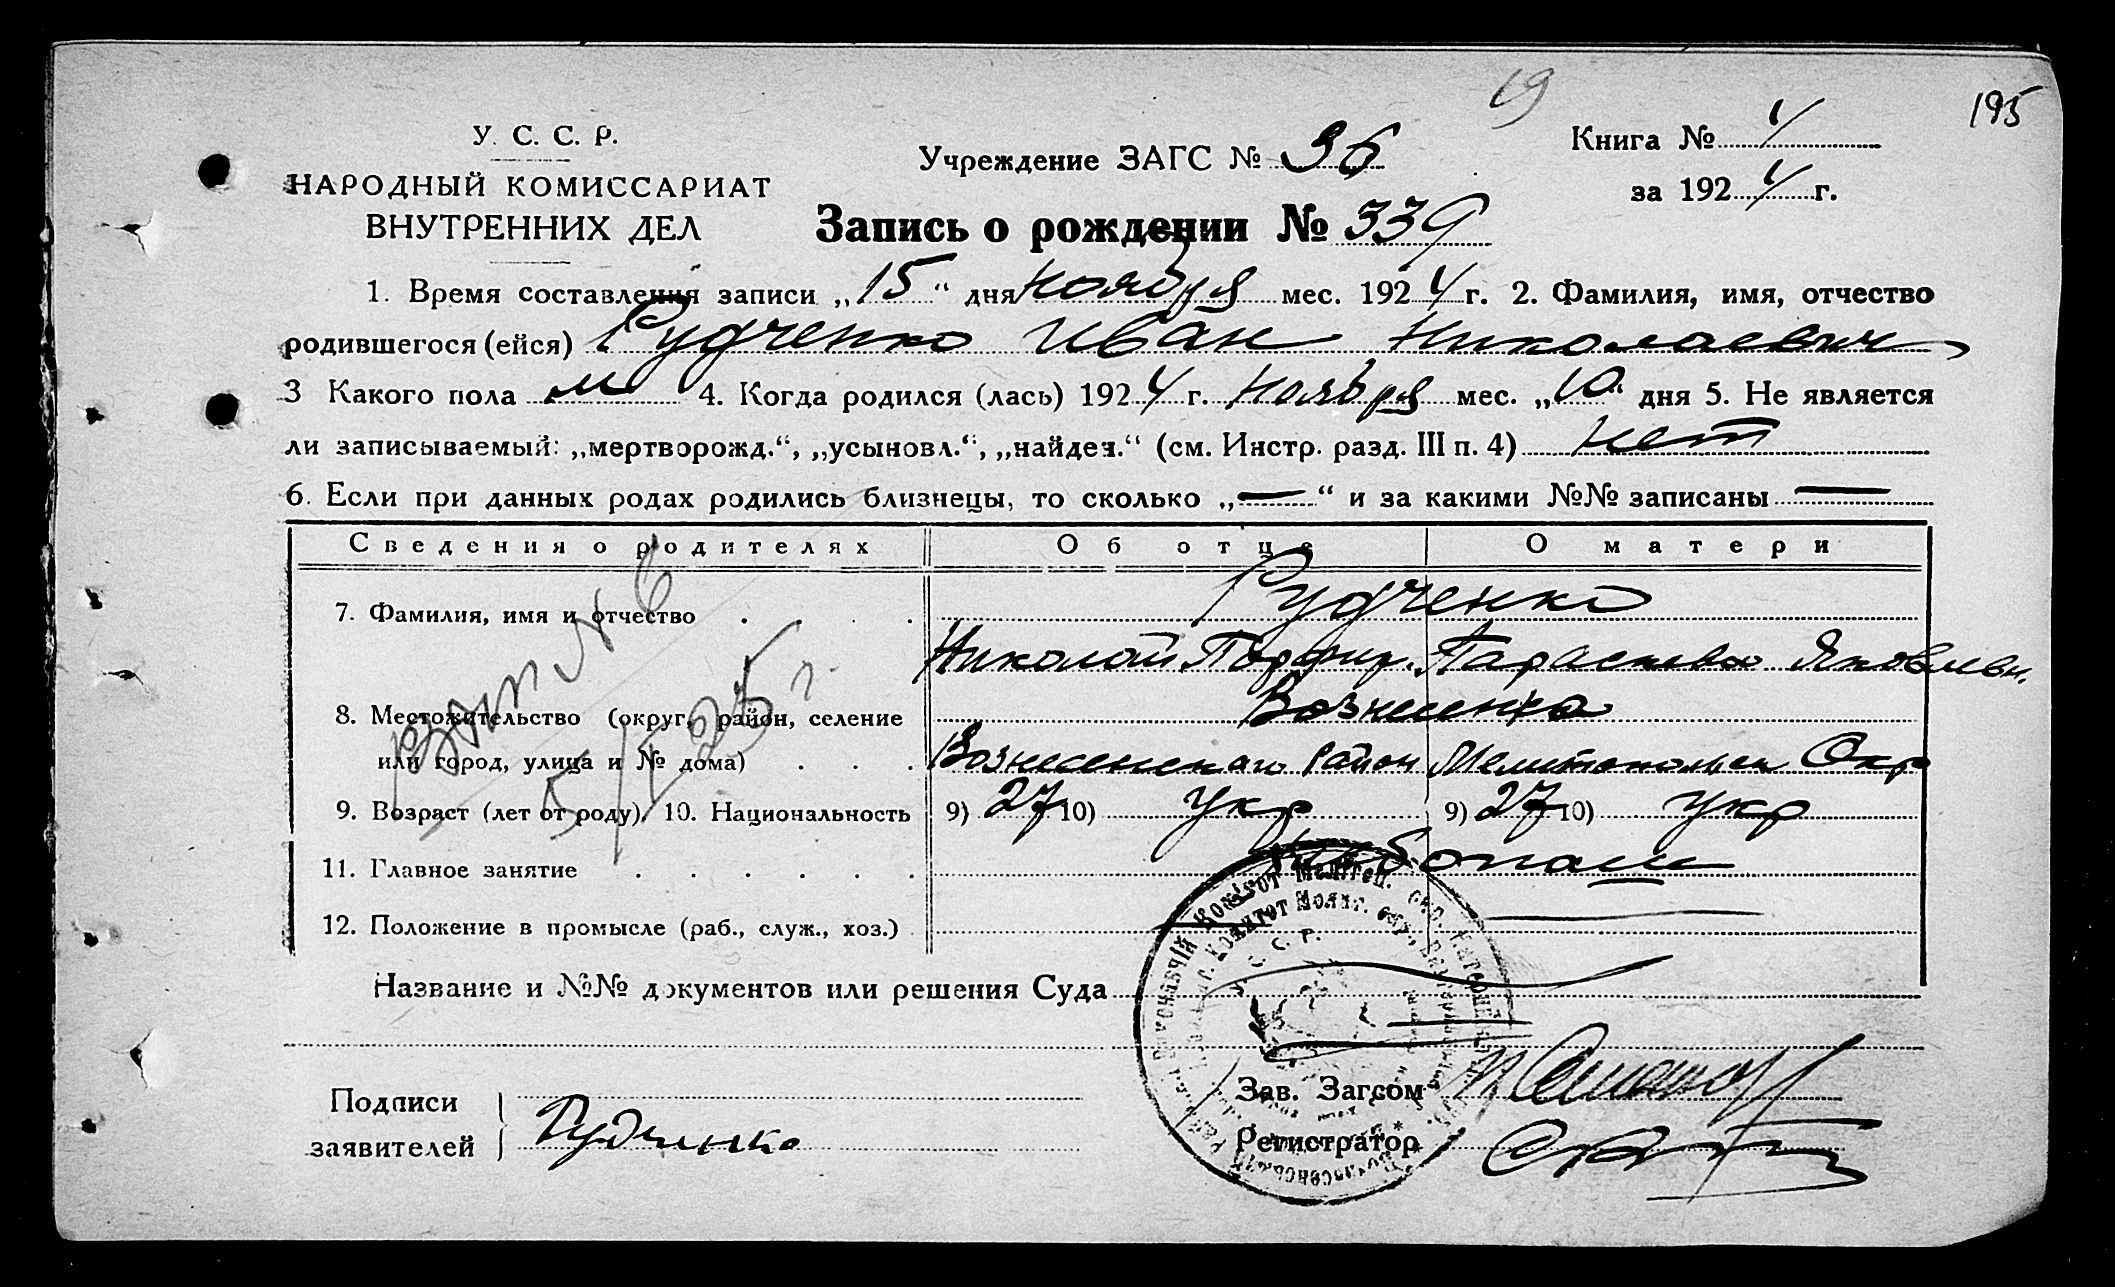 19
195
У. С. С. Р.
НАРОДНЫЙ КОМИССАРИАТ
ВНУТРЕННИХ ДЕЛ
Учреждение ЗАГС № 36
Книга № 4
за 1924 г.
Запись о рождении № 339
1. Время составления записи „15“ дня ноября мес. 1924 г. 2. Фамилия, имя, отчество
родившегося (ейся) Рудченко Иван Николаевич
3 Какого пола м 4. Когда родился (лась) 1924 г. ноября мес. „10“ дня 5. Не является
ли записываемый: „мертворожд.“, „усыновл.“, „найден.“ (см. Инстр. разд. III п. 4) нет
6. Если при данных родах родились близнецы, то сколько „—“ и за какими №№ записаны —
Сведения о родителях Об отце О матери
7. Фамилия, имя и отчество Рудченко
Николай Порфир. Параскева Яковлевн.
8. Местожительство (округ, район, селение Вознесенка
или город, улица и № дома) Вознесенского район Мелитопольск Окр
9. Возраст (лет от роду). 10. Национальность 9) 27 10) Укр 9) 27 10) Укр
11. Главное занятие хлебопаш
12. Положение в промысле (раб., служ., хоз.)
N 6
5/I 25 г.
Название и №№ документов или решения Суда
Подписи
заявителей Рудченко
Зав. Загсом
Регистратор
У. С. С. Р.